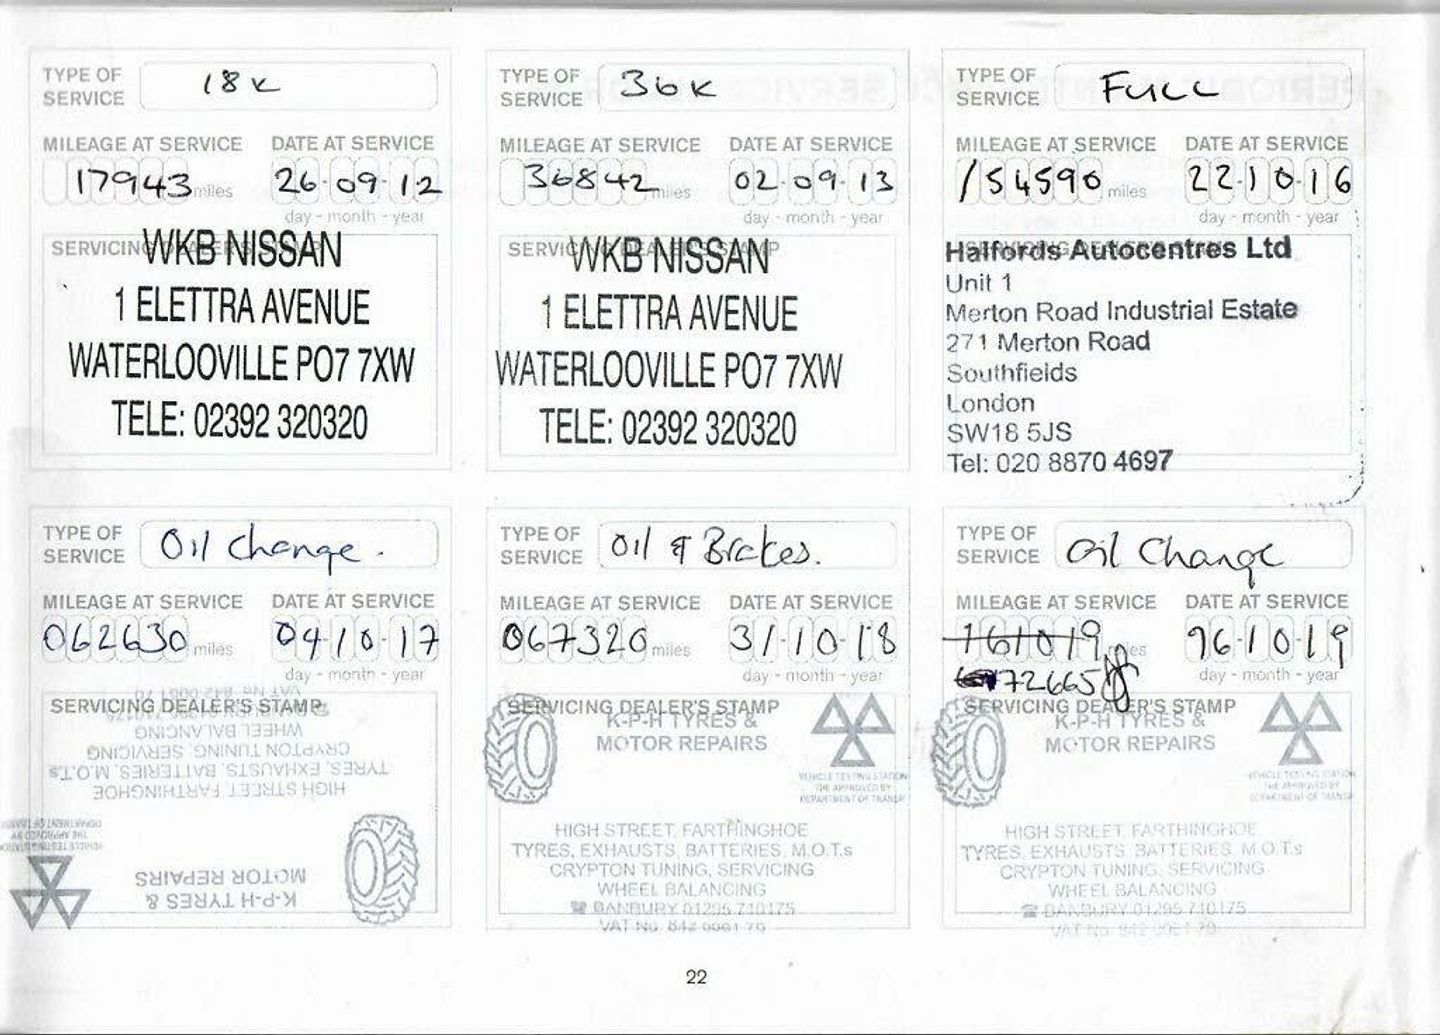 TYPE OF SERVICE 18K
MILEAGE AT SERVICE DATE AT SERVICE
17943 miles 26-09-12
day - month - year
SERVICING DEALER'S STAMP
WKB NISSAN
1 ELETTRA AVENUE
WATERLOOVILLE PO7 7XW
TELE: 02392 320320
TYPE OF SERVICE 36K
MILEAGE AT SERVICE DATE AT SERVICE
36842 miles 02-09-13
day - month - year
SERVICING DEALER'S STAMP
WKB NISSAN
1 ELETTRA AVENUE
WATERLOOVILLE PO7 7XW
TELE: 02392 320320
TYPE OF SERVICE FULL
MILEAGE AT SERVICE DATE AT SERVICE
/54590 miles 22-10-16
day - month - year
SERVICING DEALER'S STAMP
Halfords Autocentres Ltd
Unit 1
Merton Road Industrial Estate
271 Merton Road
Southfields
London
SW18 5JS
Tel: 020 8870 4697
TYPE OF SERVICE Oil Change.
MILEAGE AT SERVICE DATE AT SERVICE
062630 miles 04-10-17
day - month - year
SERVICING DEALER'S STAMP
K-P-H TYRES &
MOTOR REPAIRS
VEHICLE TESTING STATION
THE APPROVED BY
HIGH STREET FARTHINGHOE
TYRES, EXHAUSTS, BATTERIES, M.O.T.s
CRYPTON TUNING, SERVICING
WHEEL BALANCING
TYPE OF SERVICE Oil & Brakes.
MILEAGE AT SERVICE DATE AT SERVICE
067320 miles 31-10-18
day - month - year
SERVICING DEALER'S STAMP
K-P-H TYRES &
MOTOR REPAIRS
VEHICLE TESTING STATION
THE APPROVED BY
DEPARTMENT OF TRANSP
HIGH STREET, FARTHINGHOE
TYRES, EXHAUSTS, BATTERIES, M.O.T.s
CRYPTON TUNING, SERVICING
WHEEL BALANCING
☎ BANBURY 01295 710175
VAT No. 842 0061 70
TYPE OF SERVICE Oil Change
MILEAGE AT SERVICE DATE AT SERVICE
161019 miles 16-10-19
72665
day - month - year
SERVICING DEALER'S STAMP
K-P-H TYRES &
MOTOR REPAIRS
VEHICLE TESTING STATION
THE APPROVED BY
DEPARTMENT OF TRANSP
HIGH STREET, FARTHINGHOE
TYRES, EXHAUSTS, BATTERIES, M.O.T.s
CRYPTON TUNING, SERVICING
WHEEL BALANCING
☎ BANBURY 01295 710175
VAT No. 842 0061 70
22